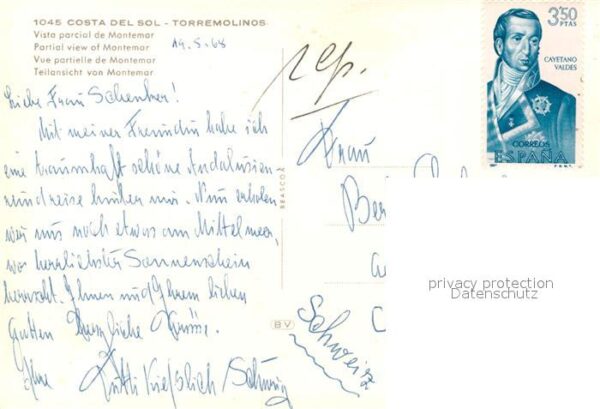 1045 COSTA DEL SOL - TORREMOLINOS
Vista parcial de Montemar
Partial view of Montemar
Vue partielle de Montemar
Teilansicht von Montemar
19.5.68
rep.
Liebe Frau Schenker!
Mit meiner Freundin habe ich
eine traumhaft schöne Andalusien-
rundreise hinter mir. Nun erholen
wir uns noch etwas am Mittelmeer,
wo herrlichster Sonnenschein
herrscht. Ihnen und Ihrem lieben
Gatten herzliche Grüsse.
Ihre
BEASCOA
BV
Frau
Schweiz
3,50
PTAS
CAYETANO
VALDES
CORREOS
ESPAÑA
privacy protection
Datenschutz